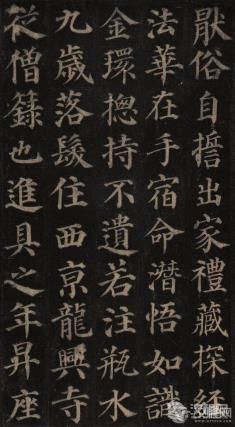 猒俗自誓出家禮藏探經
法華在手宿命潛悟如識
金環揔持不遺若注瓶水
九歲落髮住西亰龍興寺
從僧籙也進具之年昇座